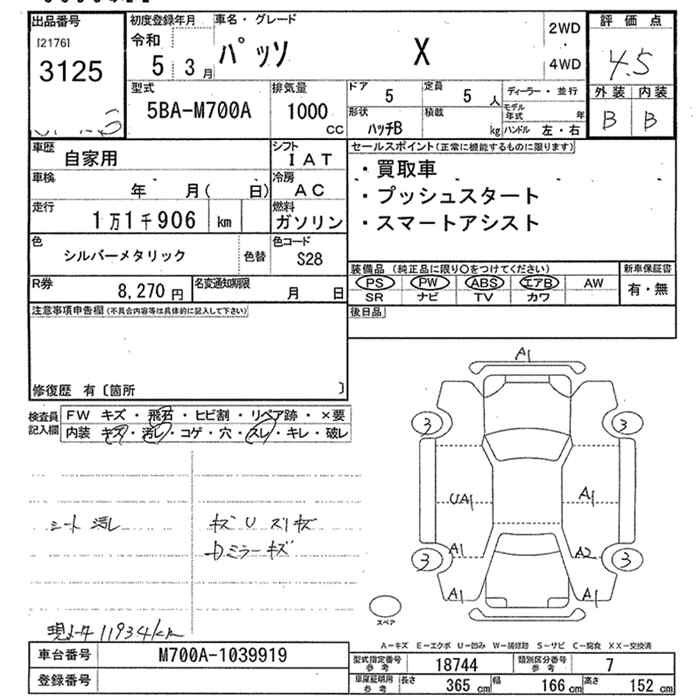 出品番号
[2176]
3125
初度登録年月
令和
5 3 月
車名・グレード
パッソ X
2WD
4WD
評価点
4.5
外装 内装
B B
型式
5BA-M700A
排気量
1000 cc
ドア
5
定員
5 人
形状
ハッチB
積載
kg
ディーラー・並行
モデル年式 年
ハンドル 左・右
車歴
自家用
シフト
IAT
セールスポイント(正常に機能するものに限ります)
・買取車
・プッシュスタート
・スマートアシスト
車検
年 月( 日)
冷房
AC
走行
1万1千906 km
燃料
ガソリン
色
シルバーメタリック
色替
色コード
S28
装備品 (純正品に限り○をつけてください)
PS PW ABS エアB AW
SR ナビ TV カワ
新車保証書
有・無
R券
8,270 円
名変通知期限
月 日
後日品
注意事項申告欄(不具合内容等は具体的に記入して下さい)
修復歴 有〔箇所 〕
検査員記入欄
FW キズ・飛石・ヒビ割・リペア跡・×要
内装 キズ・汚レ・コゲ・穴・スレ・キレ・破レ
シート 汚レ
キズ U スリキズ
Dミラーキズ
現メーター 11934km
A1
3 3
UA1 A1
A1 A2
3 3
A1 A1
スペア
A-キズ E-エクボ U-凹み W-補修跡 S-サビ C-腐食 XX-交換済
車台番号
M700A-1039919
登録番号
型式指定番号 参考
18744
類別区分番号 参考
7
車庫証明用 参考
長さ 365 cm 幅 166 cm 高さ 152 cm